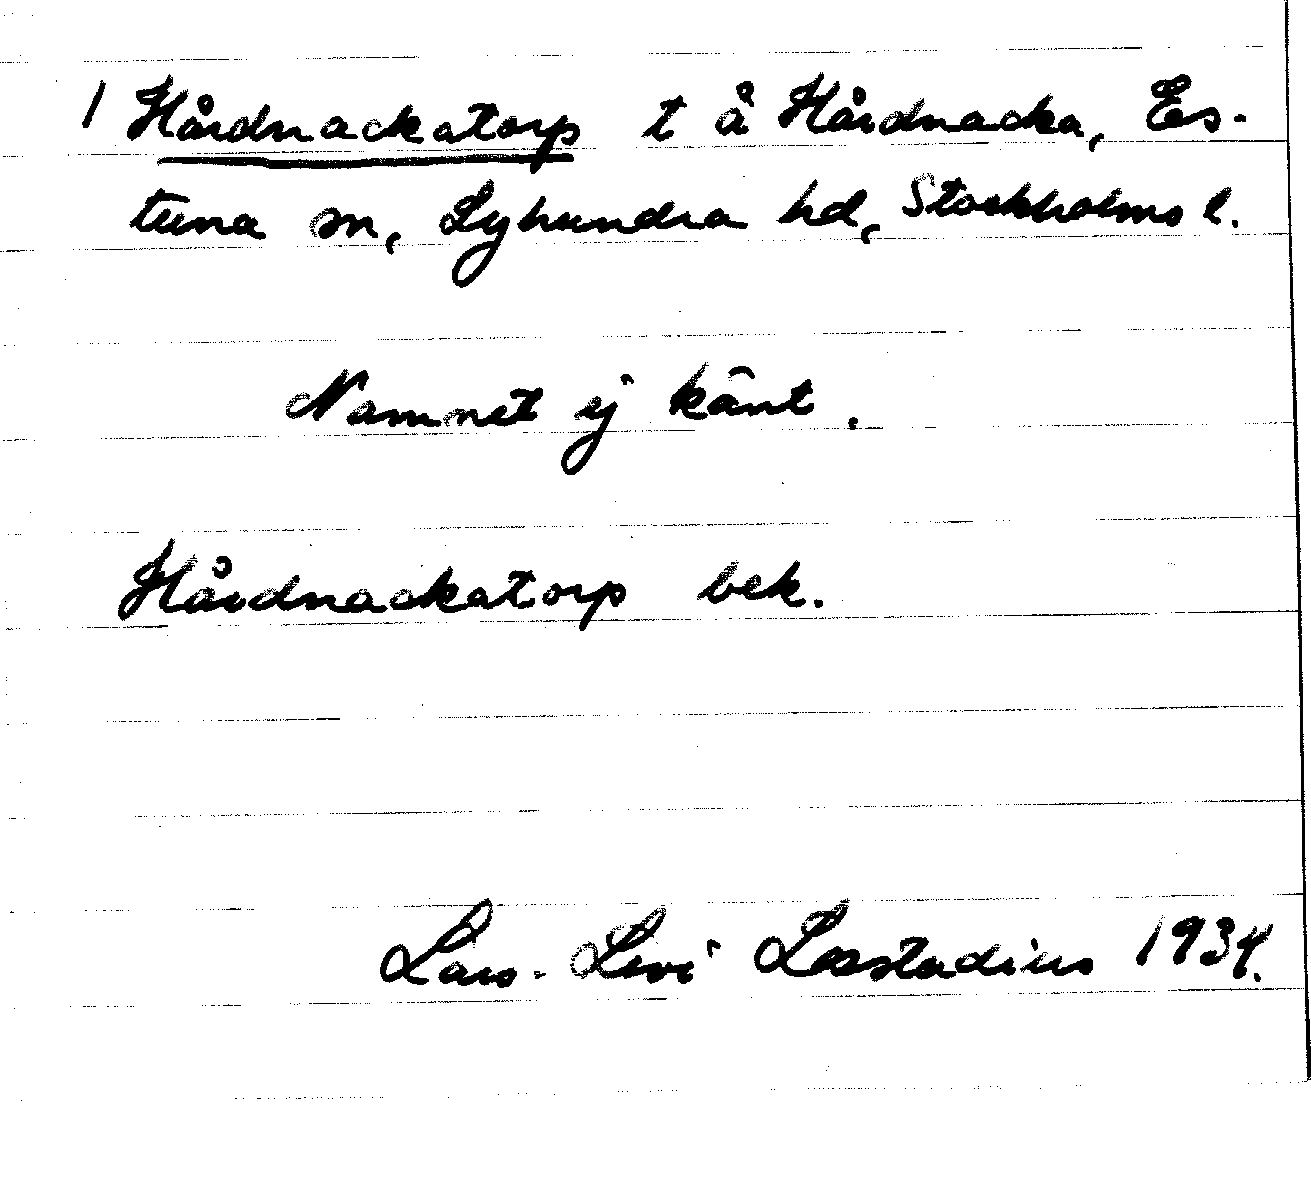 1 Hårdnackatorp t å Hårdnacka, Es-
tuna sn, Lyhundra hd, Stockholms l.
Namnet ej känt.
Hårdnackatorp bek.
Lars-Levi Læstadius 1934.